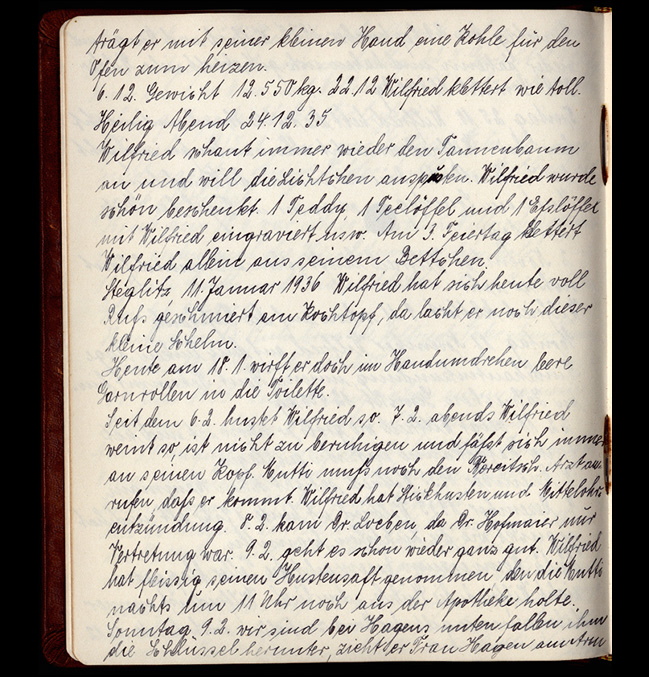 trägt er mit seiner kleinen Hand eine Kohle für den
Ofen zum heizen.
6.12. Gewicht 12.550 kg. 22.12 Wilfried klettert wie toll.
Heilig Abend 24.12.35
Wilfried schaut immer wieder den Tannenbaum
an und will die Lichtchen auspusten. Wilfried wurde
schön beschenkt. 1 Teddy, 1 Teelöffel und 1 Eßlöffel
mit Wilfried eingraviert usw. Am 3. Feiertag klettert
Wilfried allene aus seinem Bettchen.
Steglitz, 11. Januar 1936 Wilfried hat sich heute voll
Ruß geschmiert am Kochtopf, da lacht er noch dieser
kleine Schelm.
Heute am 18.1. wirft er doch im Handumdrehen leere
Garnrollen in die Toilette.
Seit dem 6.2. hustet Wilfried so. 7.2. abends Wilfried
weint so, ist nicht zu beruhigen und faßt sich immer
an seinen Kopf. Mutti muß noch den Bereitsch. Arzt an
rufen, daß er kommt. Wilfried hat Stickhusten und Mittelohr-
entzündung. 8.2. kam Dr. Loeben, da Dr. Hofmaier nur
Vertretung war. 9.2. geht es schon wieder ganz gut. Wilfried
hat fleissig seinen Hustensaft genommen, den die Mutti
nachts um 11 Uhr noch aus der Apotheke holte.
Sonntag, 9.2. wir sind bei Hagens unten fallen ihm
die Schlüssel herunter, zieht er Frau Hagen am Arm